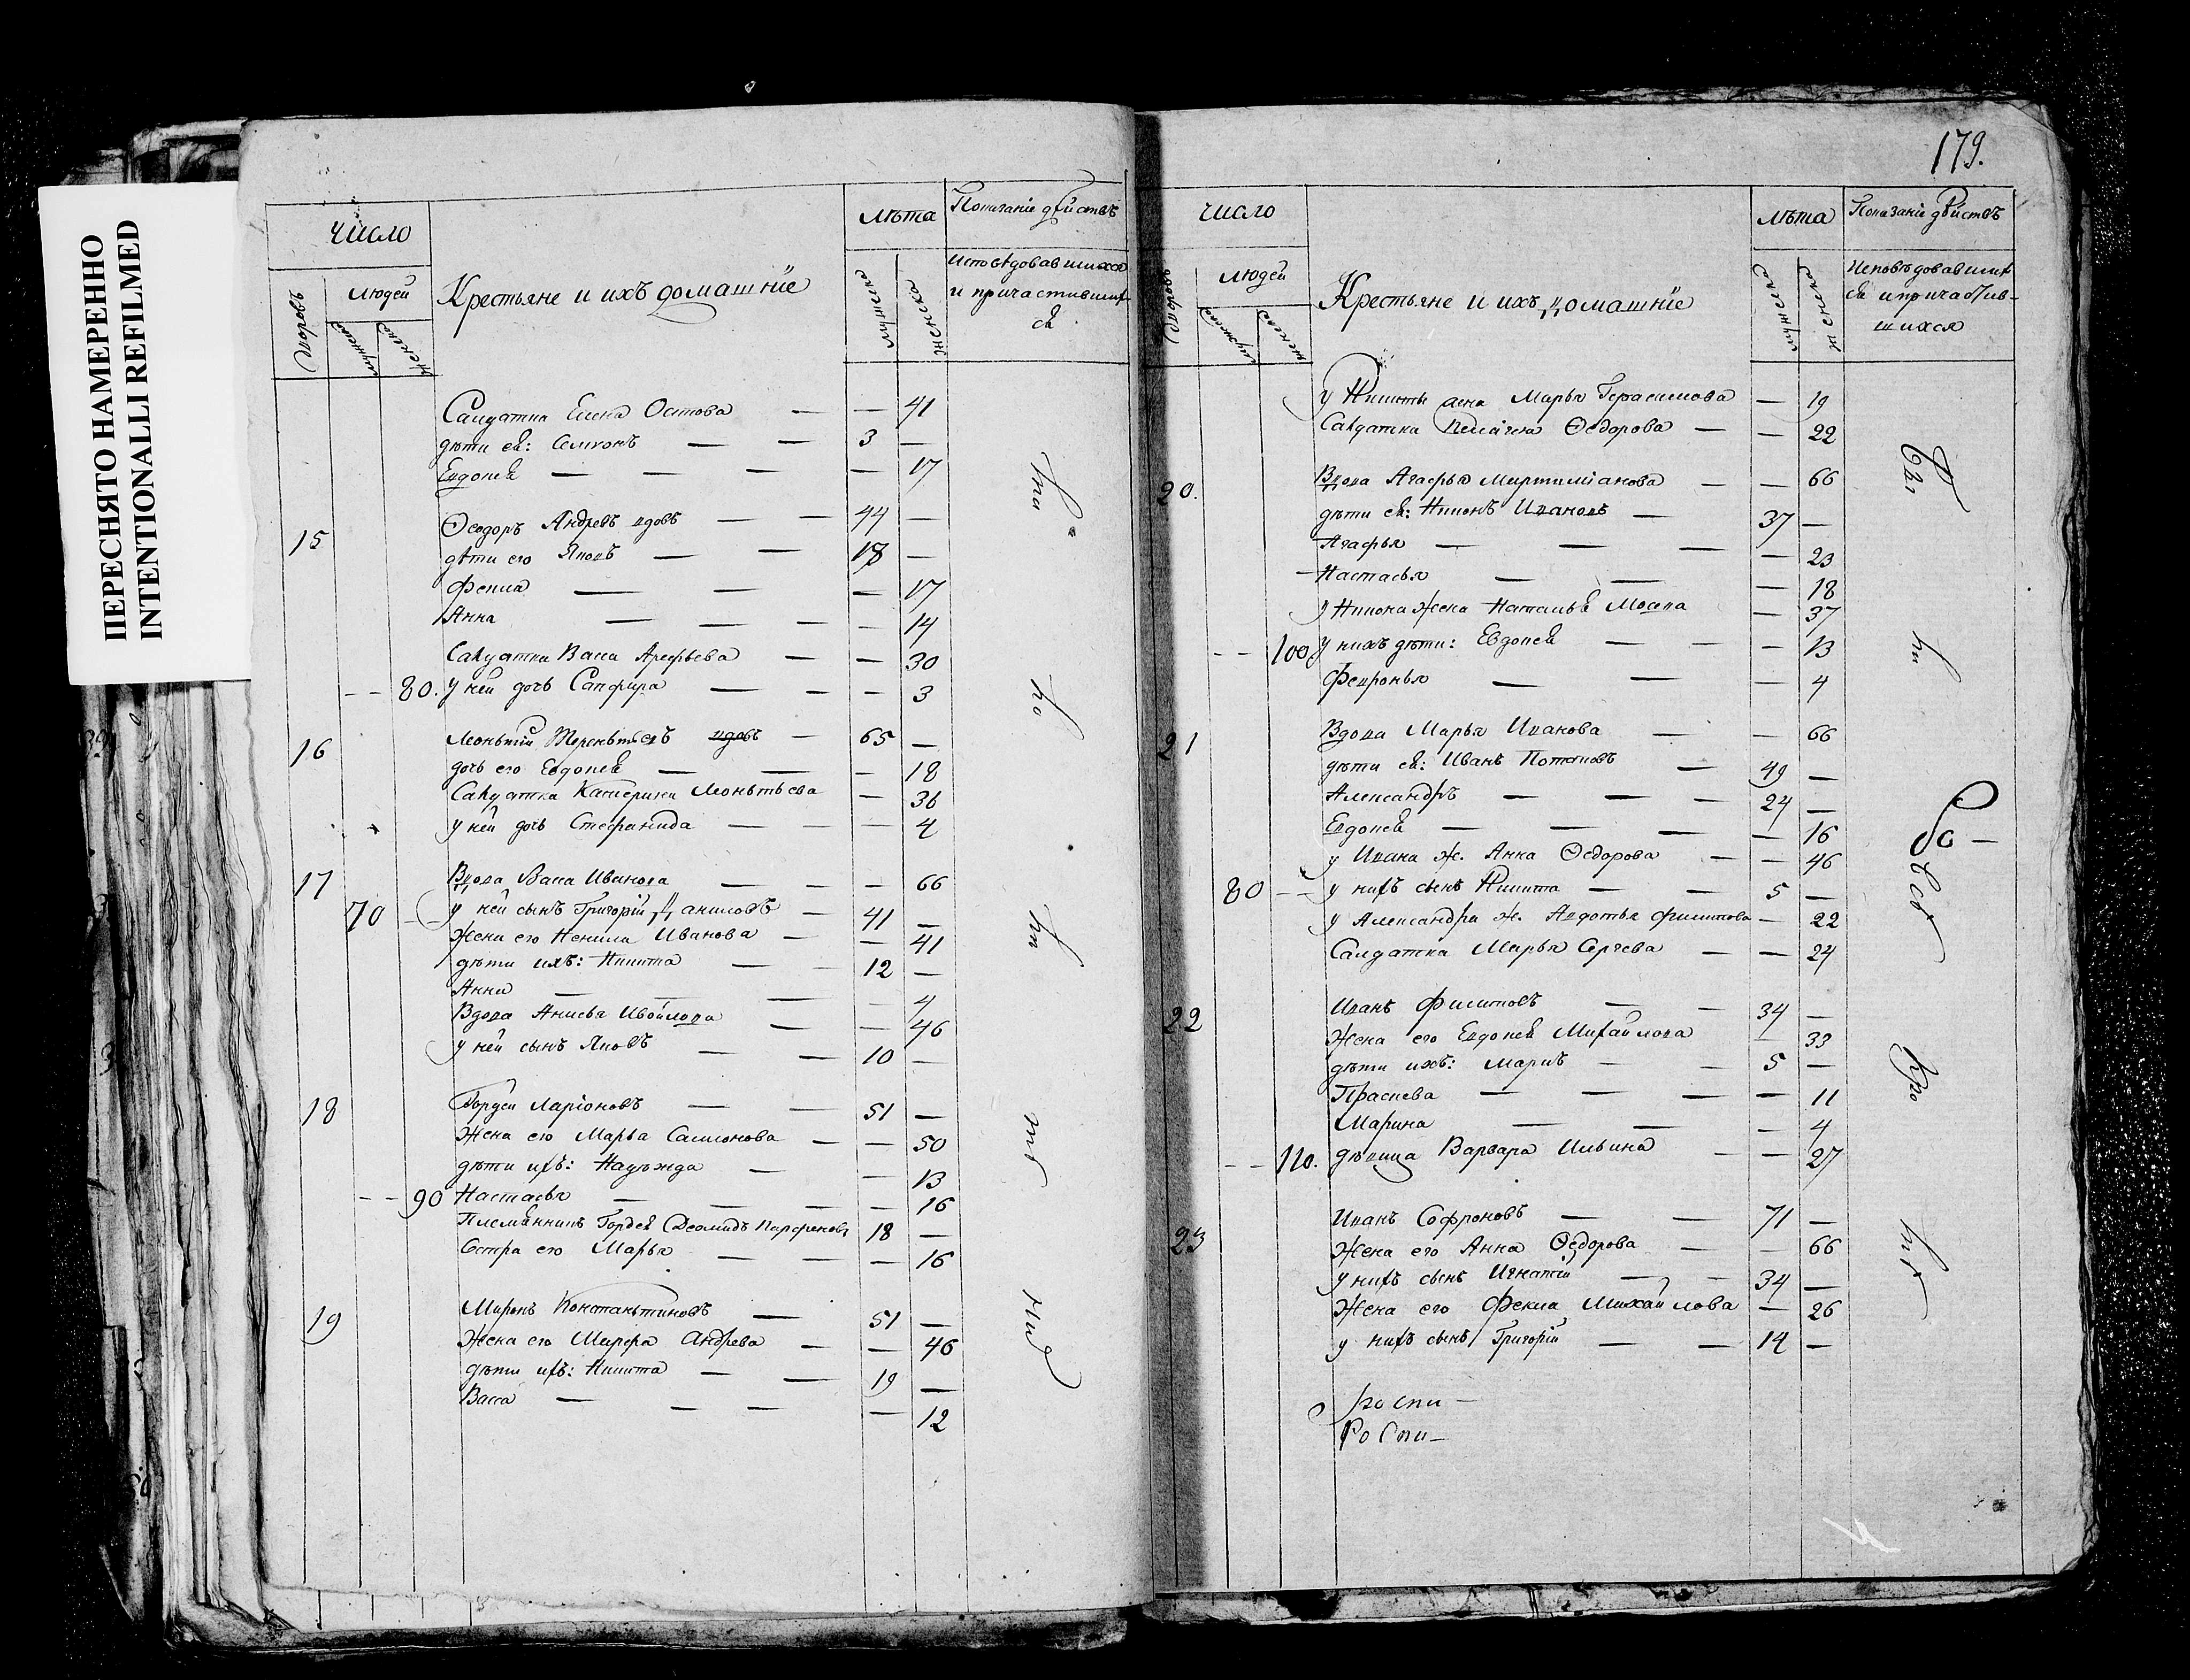 ПЕРЕСНЯТО НАМЕРЕННО
INTENTIONALLI REFILMED
Число
Лѣта
Показаніе дѣйствъ
Дворовъ
людей
мужеска
женска
Крестьяне и ихъ домашнїе
мужеска
женска
Исповѣдовавшихся
и причастивших
ся
Салдатка Елена — — 41
дѣти ея: Семионъ — — 3 —
Евдокея — — — — 17
15 Ѳеодоръ Андреевъ вдовъ — — 44 —
дѣти его Яковъ — — 18 —
Фекла — — — 17
Анна — — — — 14
Салдатка Васса Арефьева — — 30
— — 80. у ней дочь Сапфира — — — 3
16 Леонтій Терентьевъ вдовъ — 65 —
дочь его Евдокея — — — 18
Салдатка Катерина Леонтьева — 36
у ней дочь Стефанида — — — 4
17 Вдова Васса Иванова — — — 66
70 — у ней сынъ Григорій Даниловъ — 41 —
Жена его Ненила Иванова — — 41
дѣти ихъ: Никита — — 12 —
Анна — — — — 4
Вдова Анисья — — 46
у ней сынъ Яковъ — — 10 —
18 Гордей Ларіоновъ — — 51 —
Жена его Марья Самсонова — — 50
дѣти ихъ: Надежда — — 13
— — 90 Настасья — — — — 16
Племянникъ Гордея Деомидъ Парфеновъ 18 —
Сестра его Марья — — — 16
19 Миронъ Константиновъ — 51 —
Жена его Марфа Андреева — — 46
дѣти ихъ: Никита — — 19 —
Васса — — — — 12
179.
Число
Лѣта
Показаніе дѣйствъ
Дворовъ
людей
мужеска
женска
Крестьяне и ихъ домашнїе
мужеска
женска
Исповѣдовавших
ся и причастив-
шихся
у Никиты жена Марья Герасимова — 19
Салдатка Пелагея Ѳедорова — — 22
20. Вдова Агафья — — 66
дѣти ея: Никонъ Ивановъ — 37 —
Агафья — — — — 23
Настасья — — — 18
у Никона жена Наталья — 37
— — 100 у нихъ дѣти: Евдокея — — — 13
Февронья — — — 4
21 Вдова Марья Иванова — — 66
дѣти ея: Иванъ Потаповъ — 49 —
Александръ — — — 24 —
Евдокея — — — — 16
у Ивана ж. Анна Ѳедорова — — 46
80 — — у нихъ сынъ Никита — — 5 —
у Александра ж. Авдотья Филипова — 22
Салдатка Марья Сергеева — — 24
22 Иванъ Филиповъ — — 34 —
Жена его Евдокея Михайлова — 33
дѣти ихъ: Маркъ — — 5 —
Прасковья — — — — 11
Марина — — — 4
— — 110. дѣвица Варвара Ильина — — 27
23 Иванъ Софроновъ — — 71 —
Жена его Анна Ѳедорова — — 66
у нихъ сынъ Игнатій — — 34 —
Жена его Фекла Михайлова — 26
у нихъ сынъ Григорій — — 14 —
роспи—
Роспи—